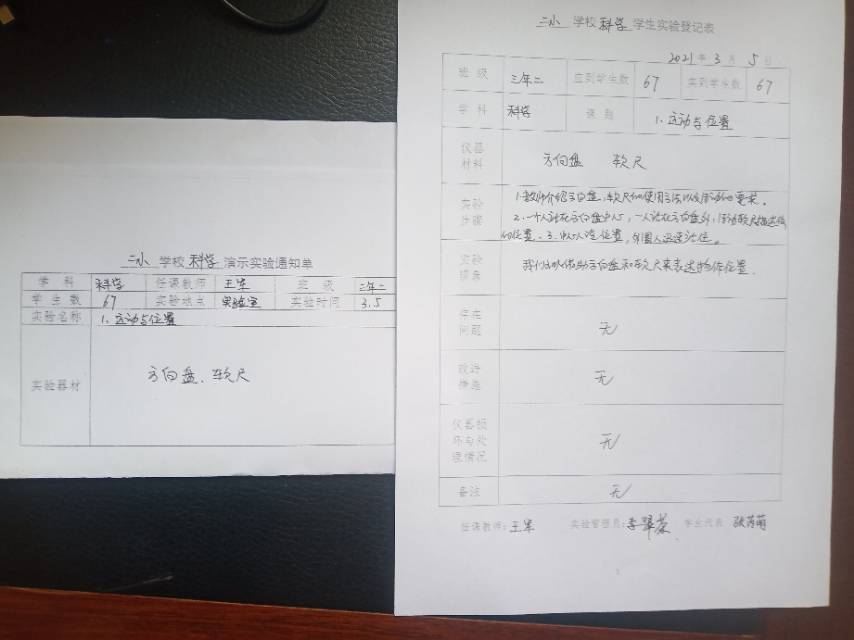 二小 学校 科学 演示实验通知单
学 科 科学 任课教师 王军 班 级 三年二
学 生 数 67 实验地点 实验室 实验时间 3.5
实验名称 1.运动与位置
实验器材 方向盘、软尺
二小 学校 科学 学生实验登记表
2021年3月5日
班 级 三年二 应到学生数 67 实到学生数 67
学 科 科学 课 题 1.运动与位置
仪器材料 方向盘 软尺
实验步骤 1.教师介绍方向盘、软尺的使用方法以及活动的要求。
2.一个人站在方向盘中心,一人站在方向盘外,用软尺描述
的位置。3.中心人 位置,外围人迅速站位。
实验 我们可以借助方向盘和软尺来表述物体位置.
存在问题 无
改进措施 无
仪器损坏与处理情况 无
备注 无
任课教师:王军 实验管理员:李翠 学生代表 张芮萌